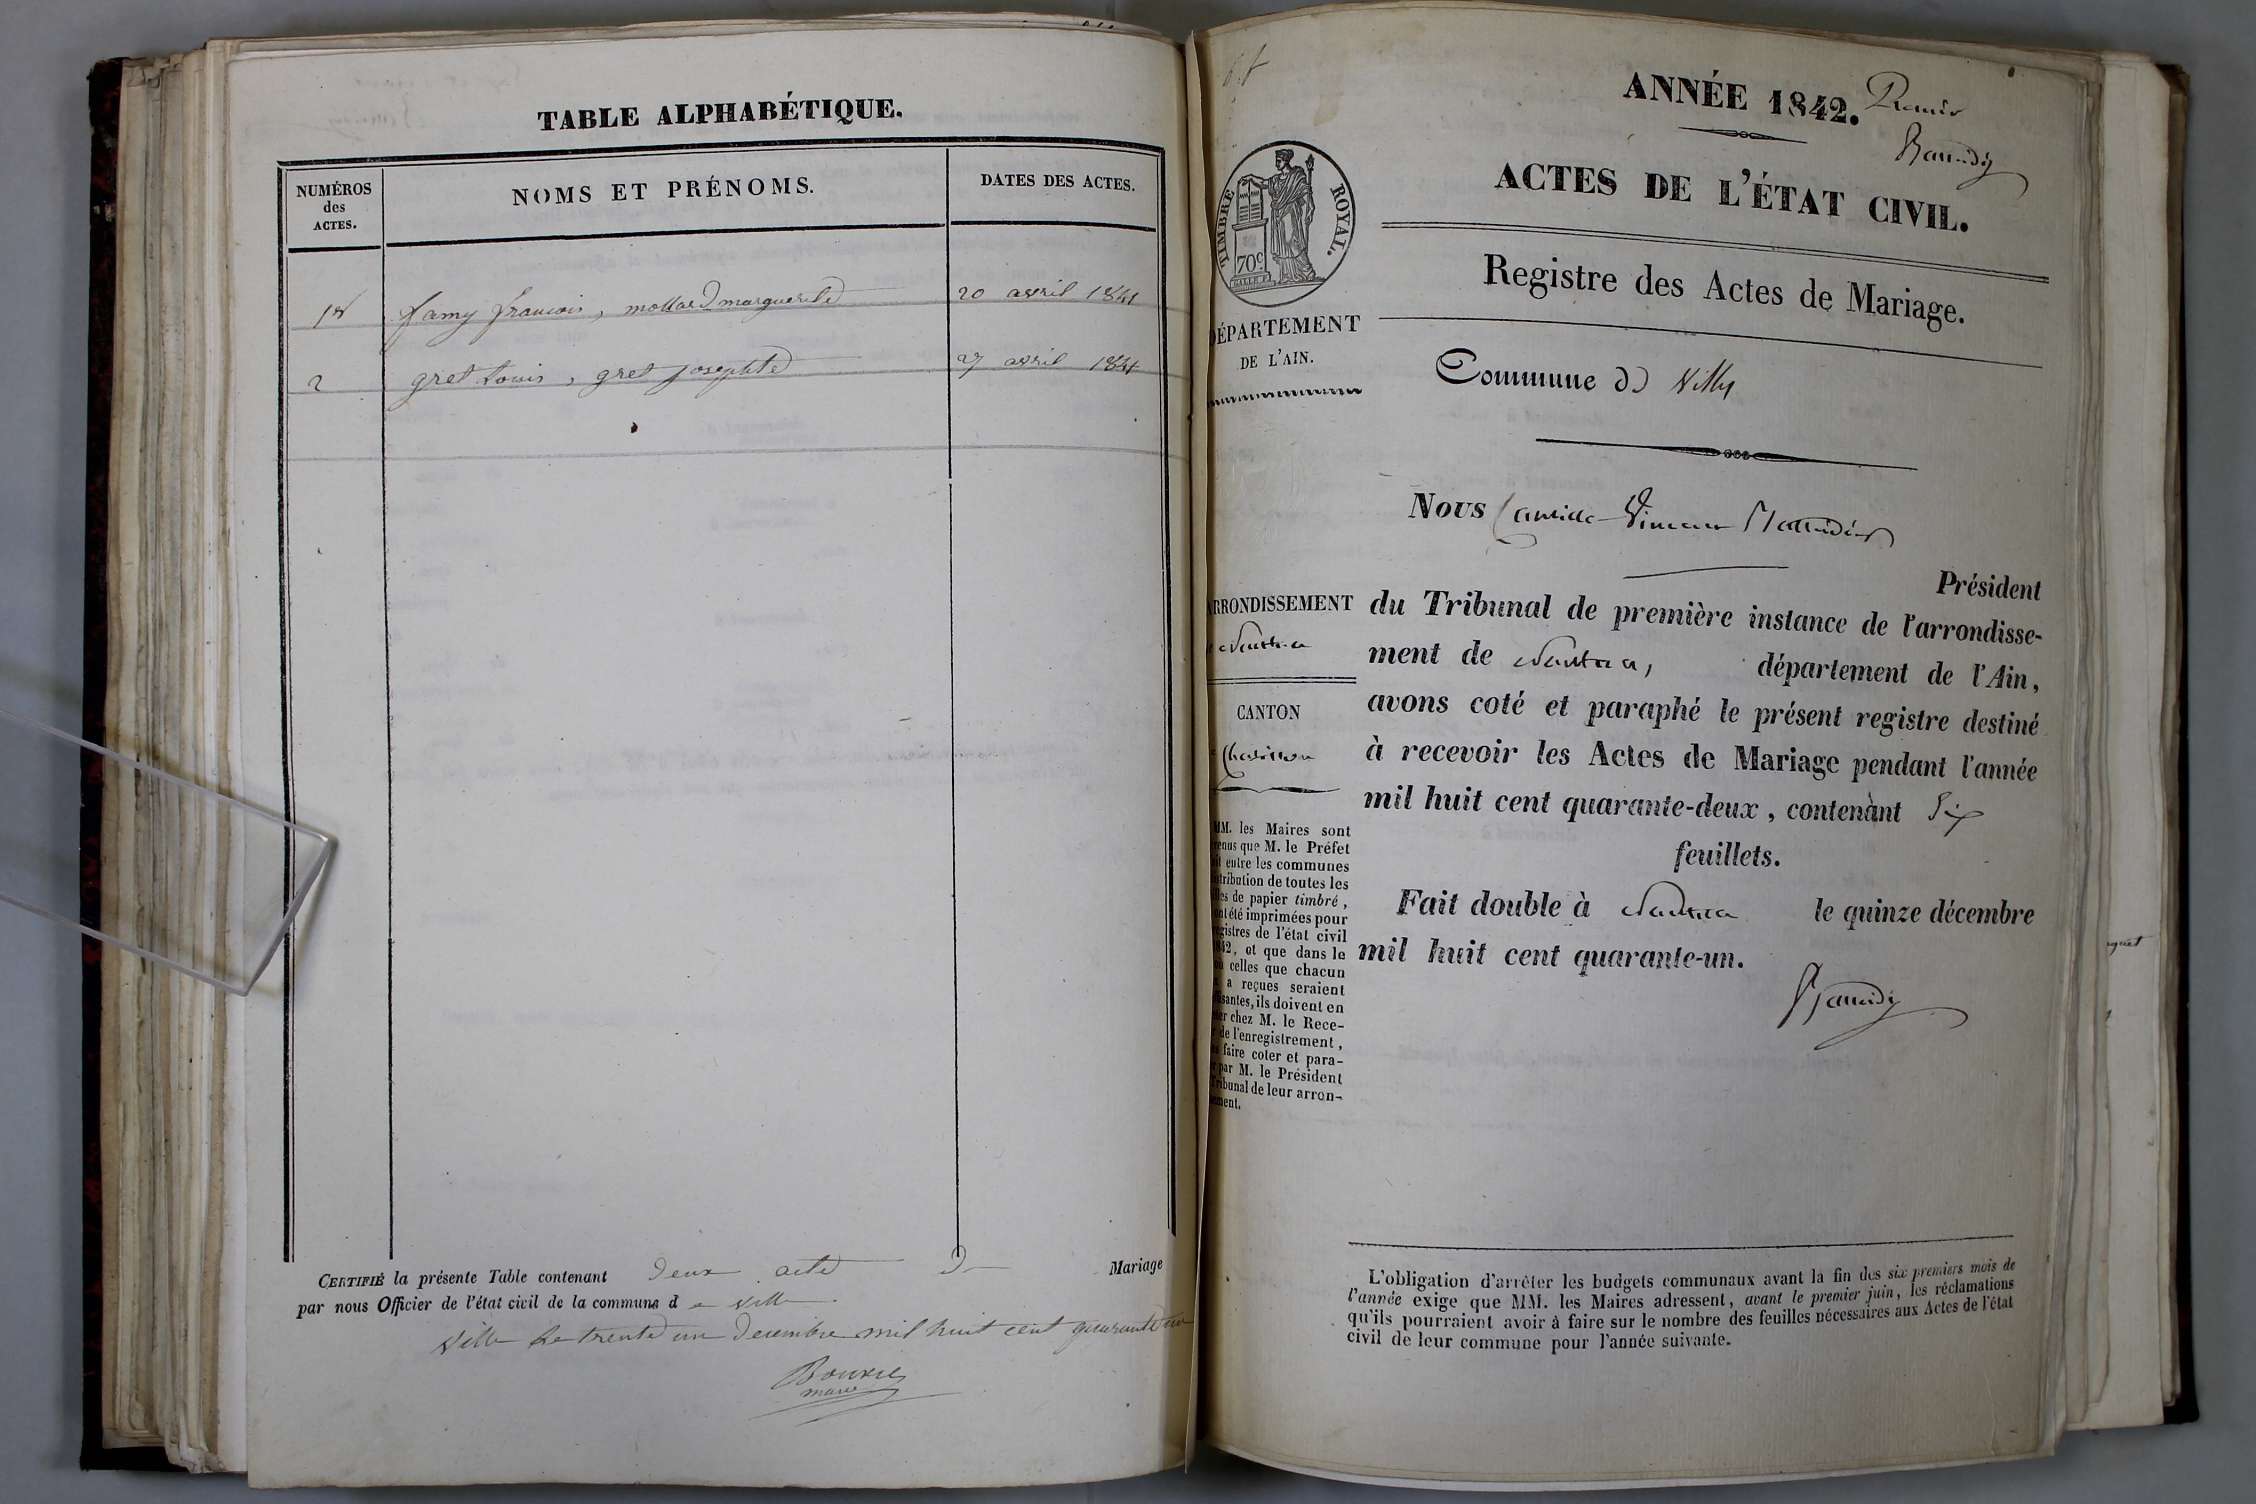 TABLE ALPHABÉTIQUE.
NUMÉROS
des
ACTES.
NOMS ET PRÉNOMS.
DATES DES ACTES.
famy francois, mollard marguerite
20 avril 1841
2
gret Louis, gret josephte
27 avril 1841
CERTIFIÉ la présente Table contenant deux acte de Mariage
par nous Officier de l'état civil de la commune de ville
ville le trente un Decembre mil huit cent quarante un
maire
ANNÉE 1842.
Premier
ACTES DE L'ÉTAT CIVIL.
TIMBRE ROYAL.
70c
Registre des Actes de Mariage.
DÉPARTEMENT
DE L'AIN.
Commune de Villy
Nous Camille Vincent
Président
ARRONDISSEMENT
du Tribunal de première instance de l'arrondisse-
de Nantua
ment de Nantua, département de l'Ain,
avons coté et paraphé le présent registre destiné
CANTON
à recevoir les Actes de Mariage pendant l'année
Chatillon
mil huit cent quarante-deux, contenant Six
feuillets.
Fait double à Nantua le quinze décembre
mil huit cent quarante-un.
MM. les Maires sont
enus que M. le Préfet
it entre les communes
stribution de toutes les
lles de papier timbré,
nt été imprimées pour
gistres de l'état civil
42, et que dans le
où celles que chacun
a reçues seraient
ffisantes, ils doivent en
er chez M. le Rece-
r de l'enregistrement,
es faire coter et para-
r par M. le Président
Tribunal de leur arron-
ement.
L'obligation d'arrêter les budgets communaux avant la fin des six premiers mois de
l'année exige que MM. les Maires adressent, avant le premier juin, les réclamations
qu'ils pourraient avoir à faire sur le nombre des feuilles nécessaires aux Actes de l'état
civil de leur commune pour l'année suivante.